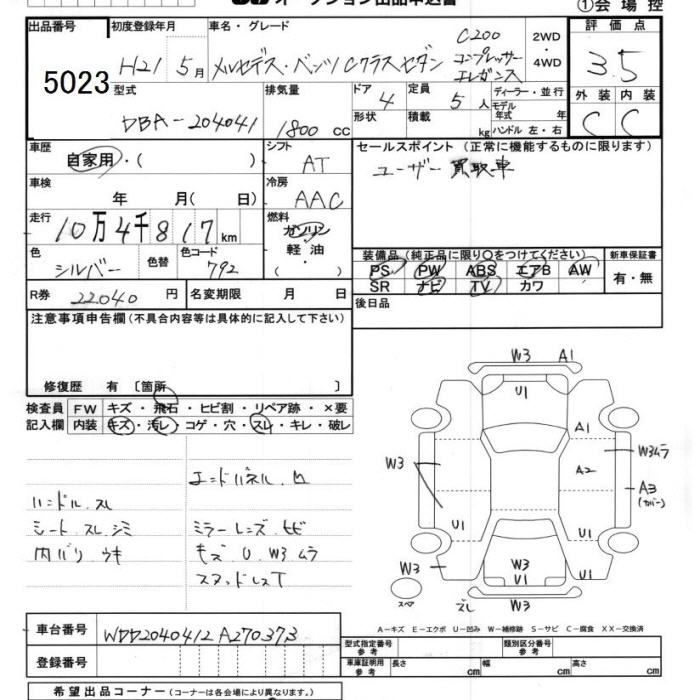 ①会場控
出品番号 初度登録年月 車名・グレード 評価点
5023 H21 5月 メルセデス・ベンツ Cクラス セダン C200 コンプレッサー エレガンス 2WD ・ 4WD 3.5
型式 排気量 ドア 定員 ディーラー・並行 外装 内装
DBA-204041 1800 cc 4 5人 モデル年式 年式 C C
形状 積載 kg ハンドル 左・右
車歴 シフト セールスポイント (正常に機能するものに限ります)
自家用・( ) AT ユーザー買取車
車検 冷房
年 月( 日) AAC
走行 燃料
10万4千817km ガソリン
色 色替 色コード 軽油・ 装備品(純正品に限り○をつけてください) 新車保証書
シルバー 792 ( ) PS PW ABS エアB AW 有・無
SR ナビ TV カワ
R券 22040 円 名変期限 月 日 後日品
注意事項申告欄(不具合内容等は具体的に記入して下さい)
修復歴 有 〔箇所 〕
検査員 FW キズ・飛石・ヒビ割・リペア跡・×要
記入欄 内装 キズ・汚レ・コゲ・穴・スレ・キレ・破レ
エンドパネル 凹
ハンドル スレ
シート スレ シミ ミラーレンズ ヒビ
内バリ ウキ キズ U W3 ムラ
スタッドレスT
W3 A1
U1
A1
W3 W3ムラ
A2
A3
(カバー)
U1 U1
W3 W3 U1
U1
スペア W3
A-キズ E-エクボ U-凹み W-補修跡 S-サビ C-腐食 XX-交換済
車台番号 WDD2040412A270373
型式指定番号 類別区分番号
登録番号 車庫証明用参考 長さ cm 幅 cm 高さ cm
希望出品コーナー(コーナーは各会場により異なります。)